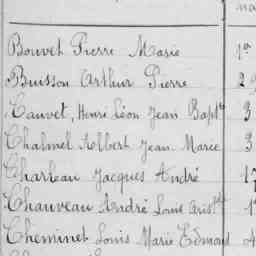 Bouvet Pierre Marie
Buisson Arthur Pierre
Cauvet, Henri Léon Jean Bapte 3
Chalmel Albert Jean Marie 3
Charleau Jacques André
Chauveau André Louis
Cheminet Louis Marie Edmond